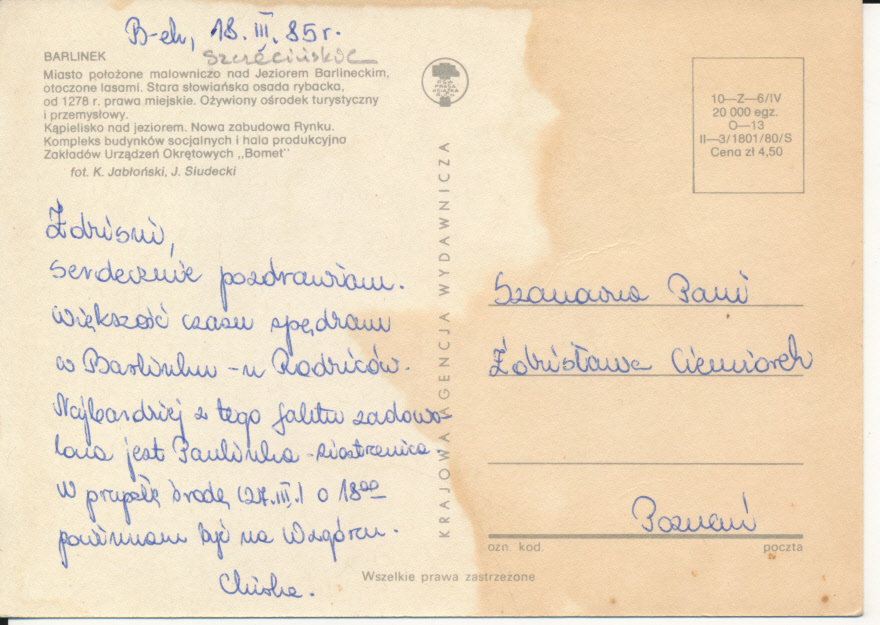 B-ek, 18.III.85r.
Szczecińskie
BARLINEK
Miasto położone malowniczo nad Jeziorem Barlineckim,
otoczone lasami. Stara słowiańska osada rybacka,
od 1278 r. prawa miejskie. Ożywiony ośrodek turystyczny
i przemysłowy.
Kąpielisko nad jeziorem. Nowa zabudowa Rynku.
Kompleks budynków socjalnych i hala produkcyjna
Zakładów Urządzeń Okrętowych „Bomet"
fot. K. Jabłoński, J. Siudecki
Zdrisni,
serdecznie pozdrawiam.
Większość czasu spędzam
w Barlinku - u Rodziców.
Najbardziej z tego faktu zadowo-
lona jest Paulinka - siostrzenica.
W przyszłą środę (27.III.) o 18⁰⁰
powinnam być na Wzgórzu.
KRAJOWA AGENCJA WYDAWNICZA
Wszelkie prawa zastrzeżone
10—Z—6/IV
20 000 egz.
O—13
II—3/1801/80/S
Cena zł 4,50
Szanowna Pani
Zdzisława Ciemiorek
Poznań
ozn. kod. poczta